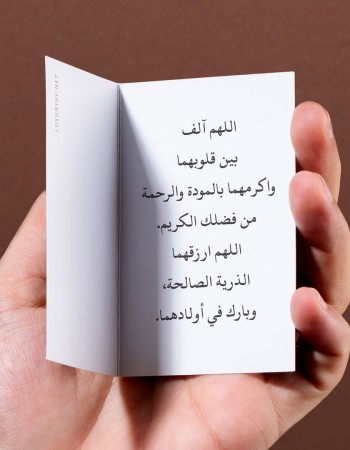 اللهم آلف
بين قلوبهما
واكرمهما بالمودة والرحمة
من فضلك الكريم.
اللهم ارزقهما
الذرية الصالحة،
وبارك في أولادهما.
LUXURYBY.NET